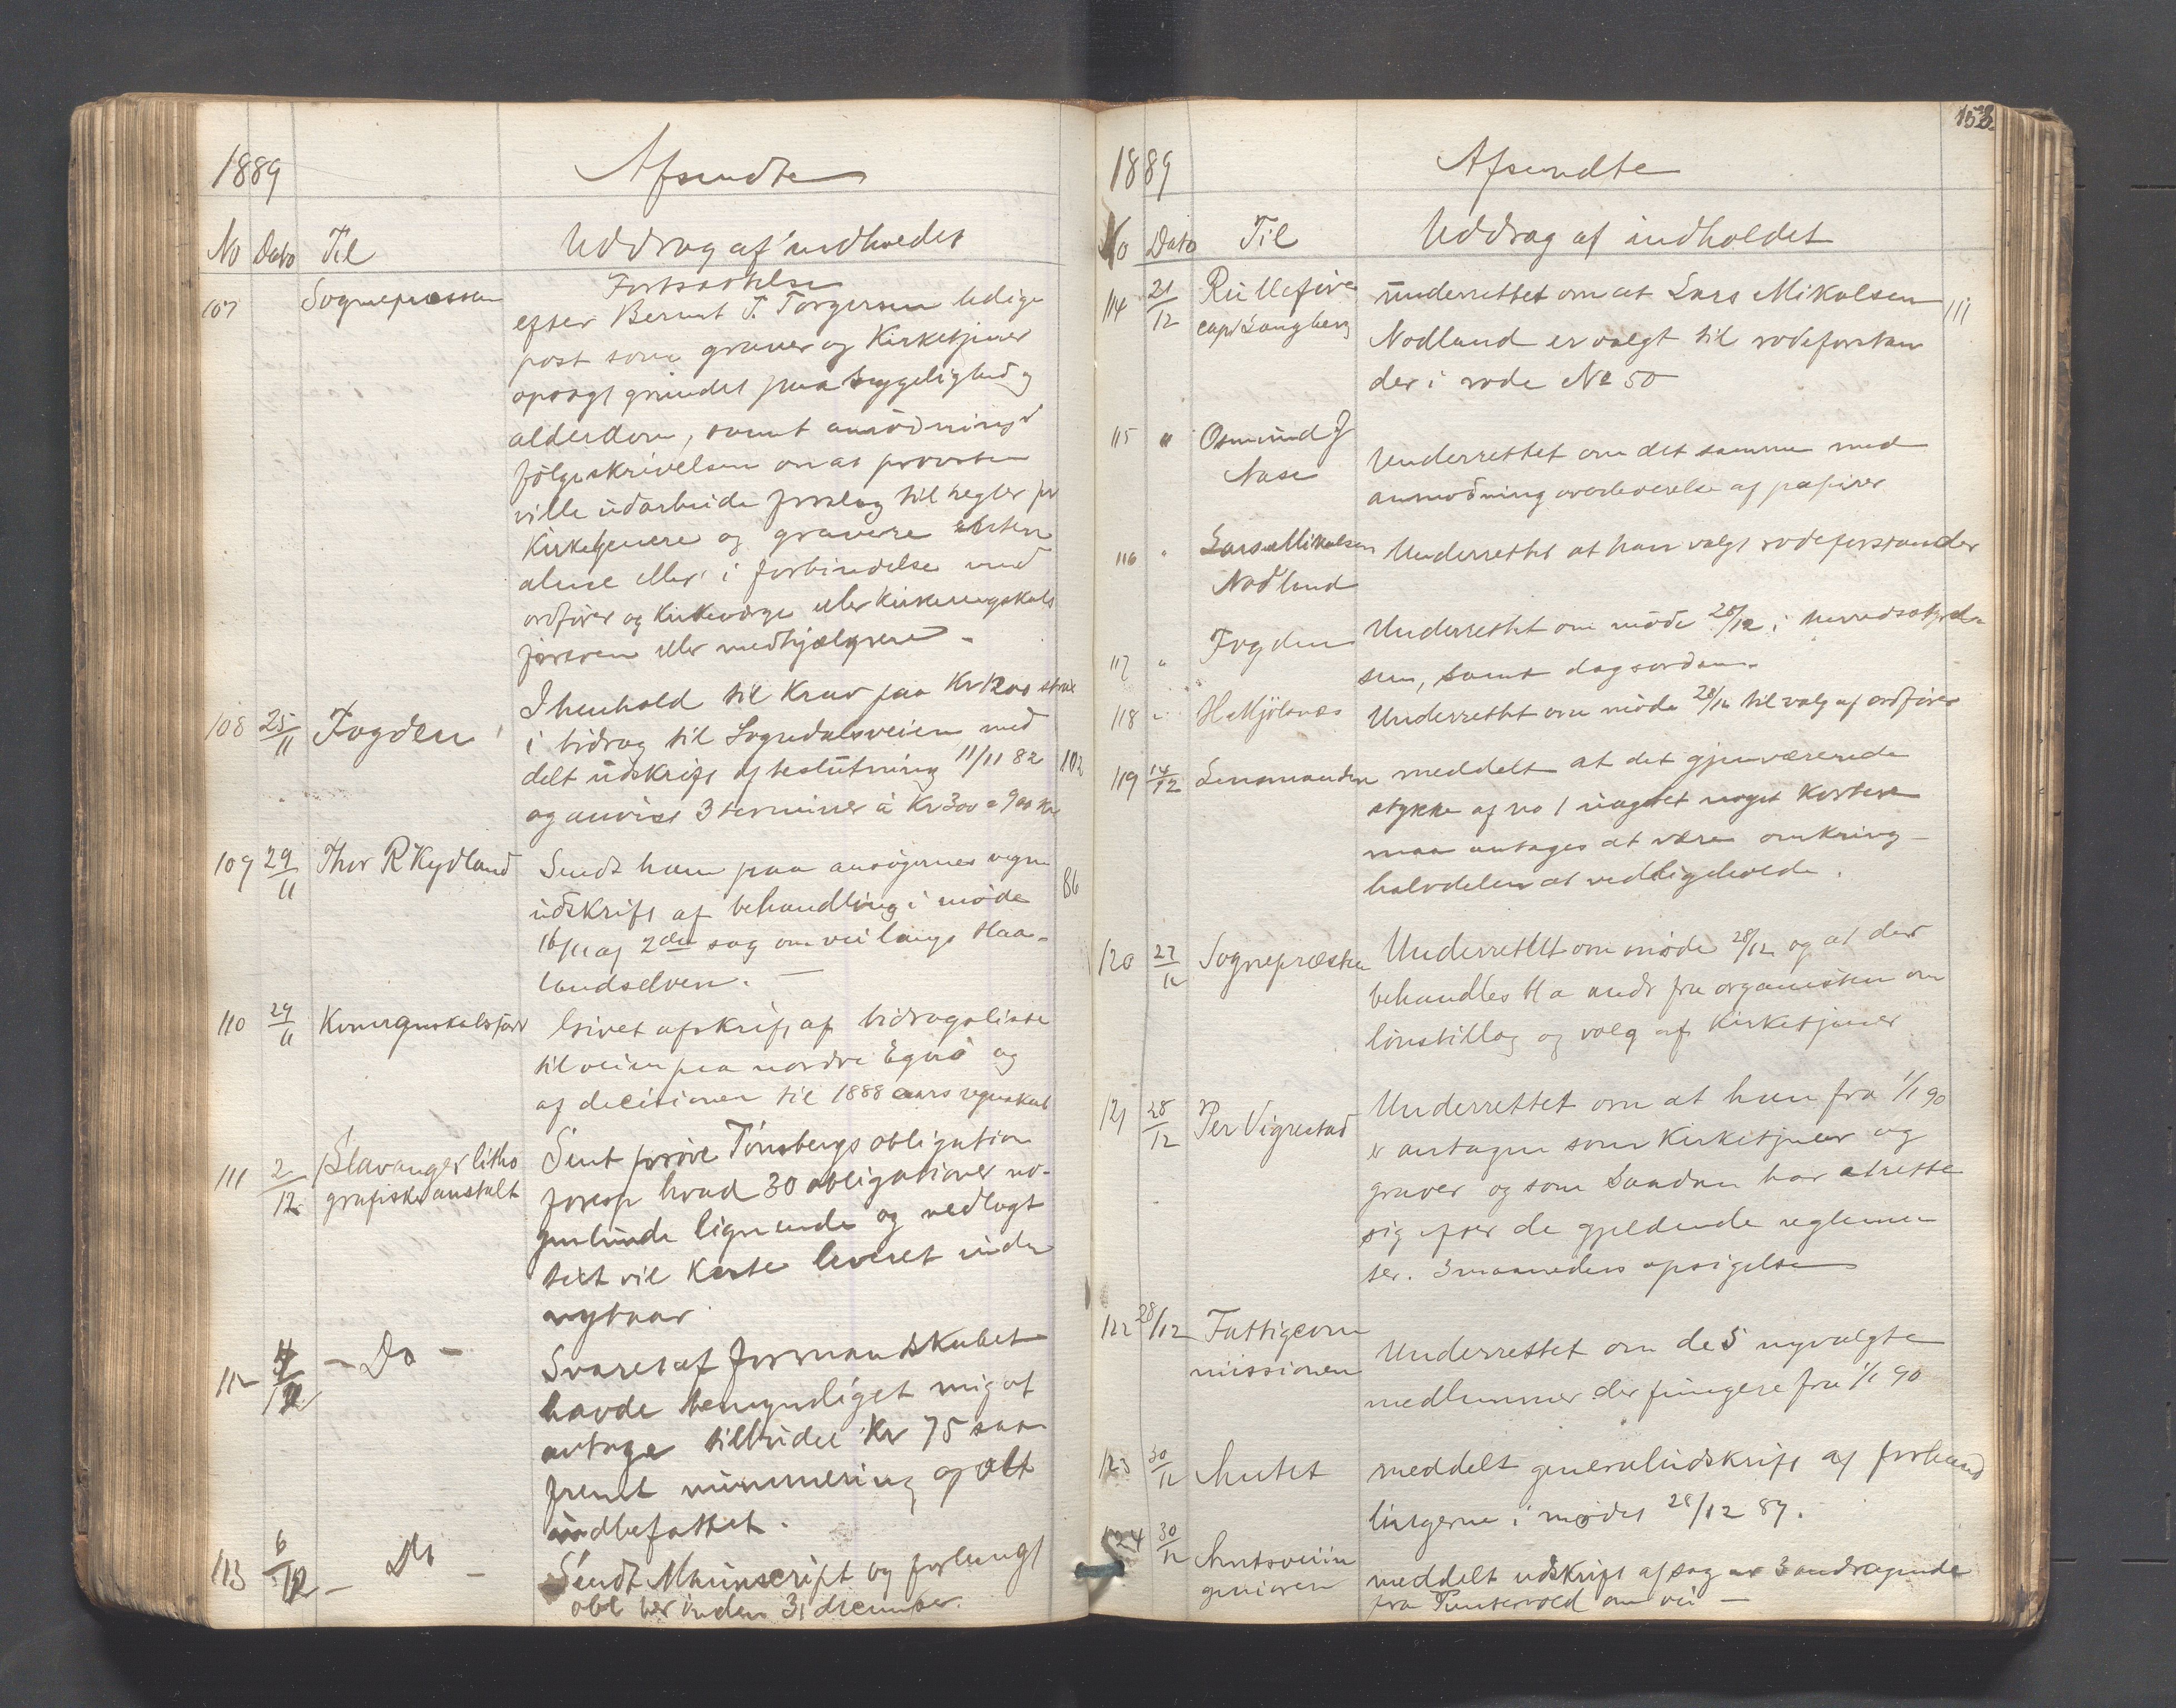 1889 Afsendte
No Dato Til Uddrag af indholdet
Fortsættelse
107 Sognepræsten
efter Bernt T. Torgersen ledige
post som graver og Kirketjener
opsagt grundet paa sygelighed og
alderdom, samt anmodning i
følgeskrivelsen om at provsten
ville udarbeide forslag til regler for
Kirketjenere og gravere enten
alene eller i forbindelse med
ordfører og Kirkeværge eller Kirkeregnskabs
føreren eller medhjælpere
108 25/11 Fogden
I henhold til Krav paa Kr 1200 strax
i bidrag til Sogndalsveien med
delt udskrift af beslutning 11/11 82 102
og anvist 3 terminer à Kr 300 = 900 Kr
109 29/11 Thor R Kydland
Sendt ham paa ansøgernes vegne 86
udskrift af behandling i møde
16/11 af 2den sag om vei langs Haa-
landselven.
110 29/11 Kommuneskasserer
Givet afskrift af bidragsliste
til veien paa nordre Egerø og
af decisioner til 1888 aars regnskab
111 2/12 Stavanger litho
grafiske anstalt
Sent prøve Tønsbergs obligation
foresp hvad 30 obligationer no-
genlunde lignende og vedlagt
text vil Koste leveret inden
nytaar
112 4/12 - Do -
Svaret af formandskabet
havde bemyndiget mig at
antage tilbudet Kr 75 saa-
fremt nummering og alt
indbefattet.
113 6/12 - Do -
Sendt Manuscript og forlangt
obl her inden 31 december.
153.
1889 Afsendte
No Dato Til Uddrag af indholdet
114 21/12 Rullefører
capt Langberg
Underrettet om at Lars Mikalsen 111
Nodland er valgt til rodeforstan
der i rode No 50
115 " Osmund J
Nase
Underrettet om det samme med
anmodning overleverelse af papirer
116 " Lars Mikalsen
Nodland
Underrettet at han valgt rodeforstander
117 " Fogden
Underrettet om møde 28/12 i herredsstyrel
sen, samt dagsorden.
118 " H Mjølsnæs
Underrettet om møde 28/12 til valg af ordfører
119 14/12 Lensmanden
meddelt at det gjenværende
stykke af no 1 uagtet noget Kortere
maa antages at være omkring
halvdelen at vedligeholde.
120 27/12 Sognepræsten
Underrettet om møde 28/12 og at der
behandles bl a andr fra organisten om
lønstillæg og valg af Kirketjener
121 28/12 Per Vigrestad
Underrettet om at han fra 1/1 90
er antagen som Kirketjener og
graver og som Saadan har at rette
sig efter de gjeldende reglemen
ter. 3 maaneders opsigelse
122 28/12 Fattigcom
missionen
Underrettet om de 5 nyvalgte
medlemmer der fungere fra 1/1 90
123 30/12 Amtet
meddelt generaludskrift af forhand
lingerne i mødet 28/12 89.
124 30/12 Amtsveiin
geniøren
meddelt udskrift af sag 3 andragende
fra Puntervold om vei -